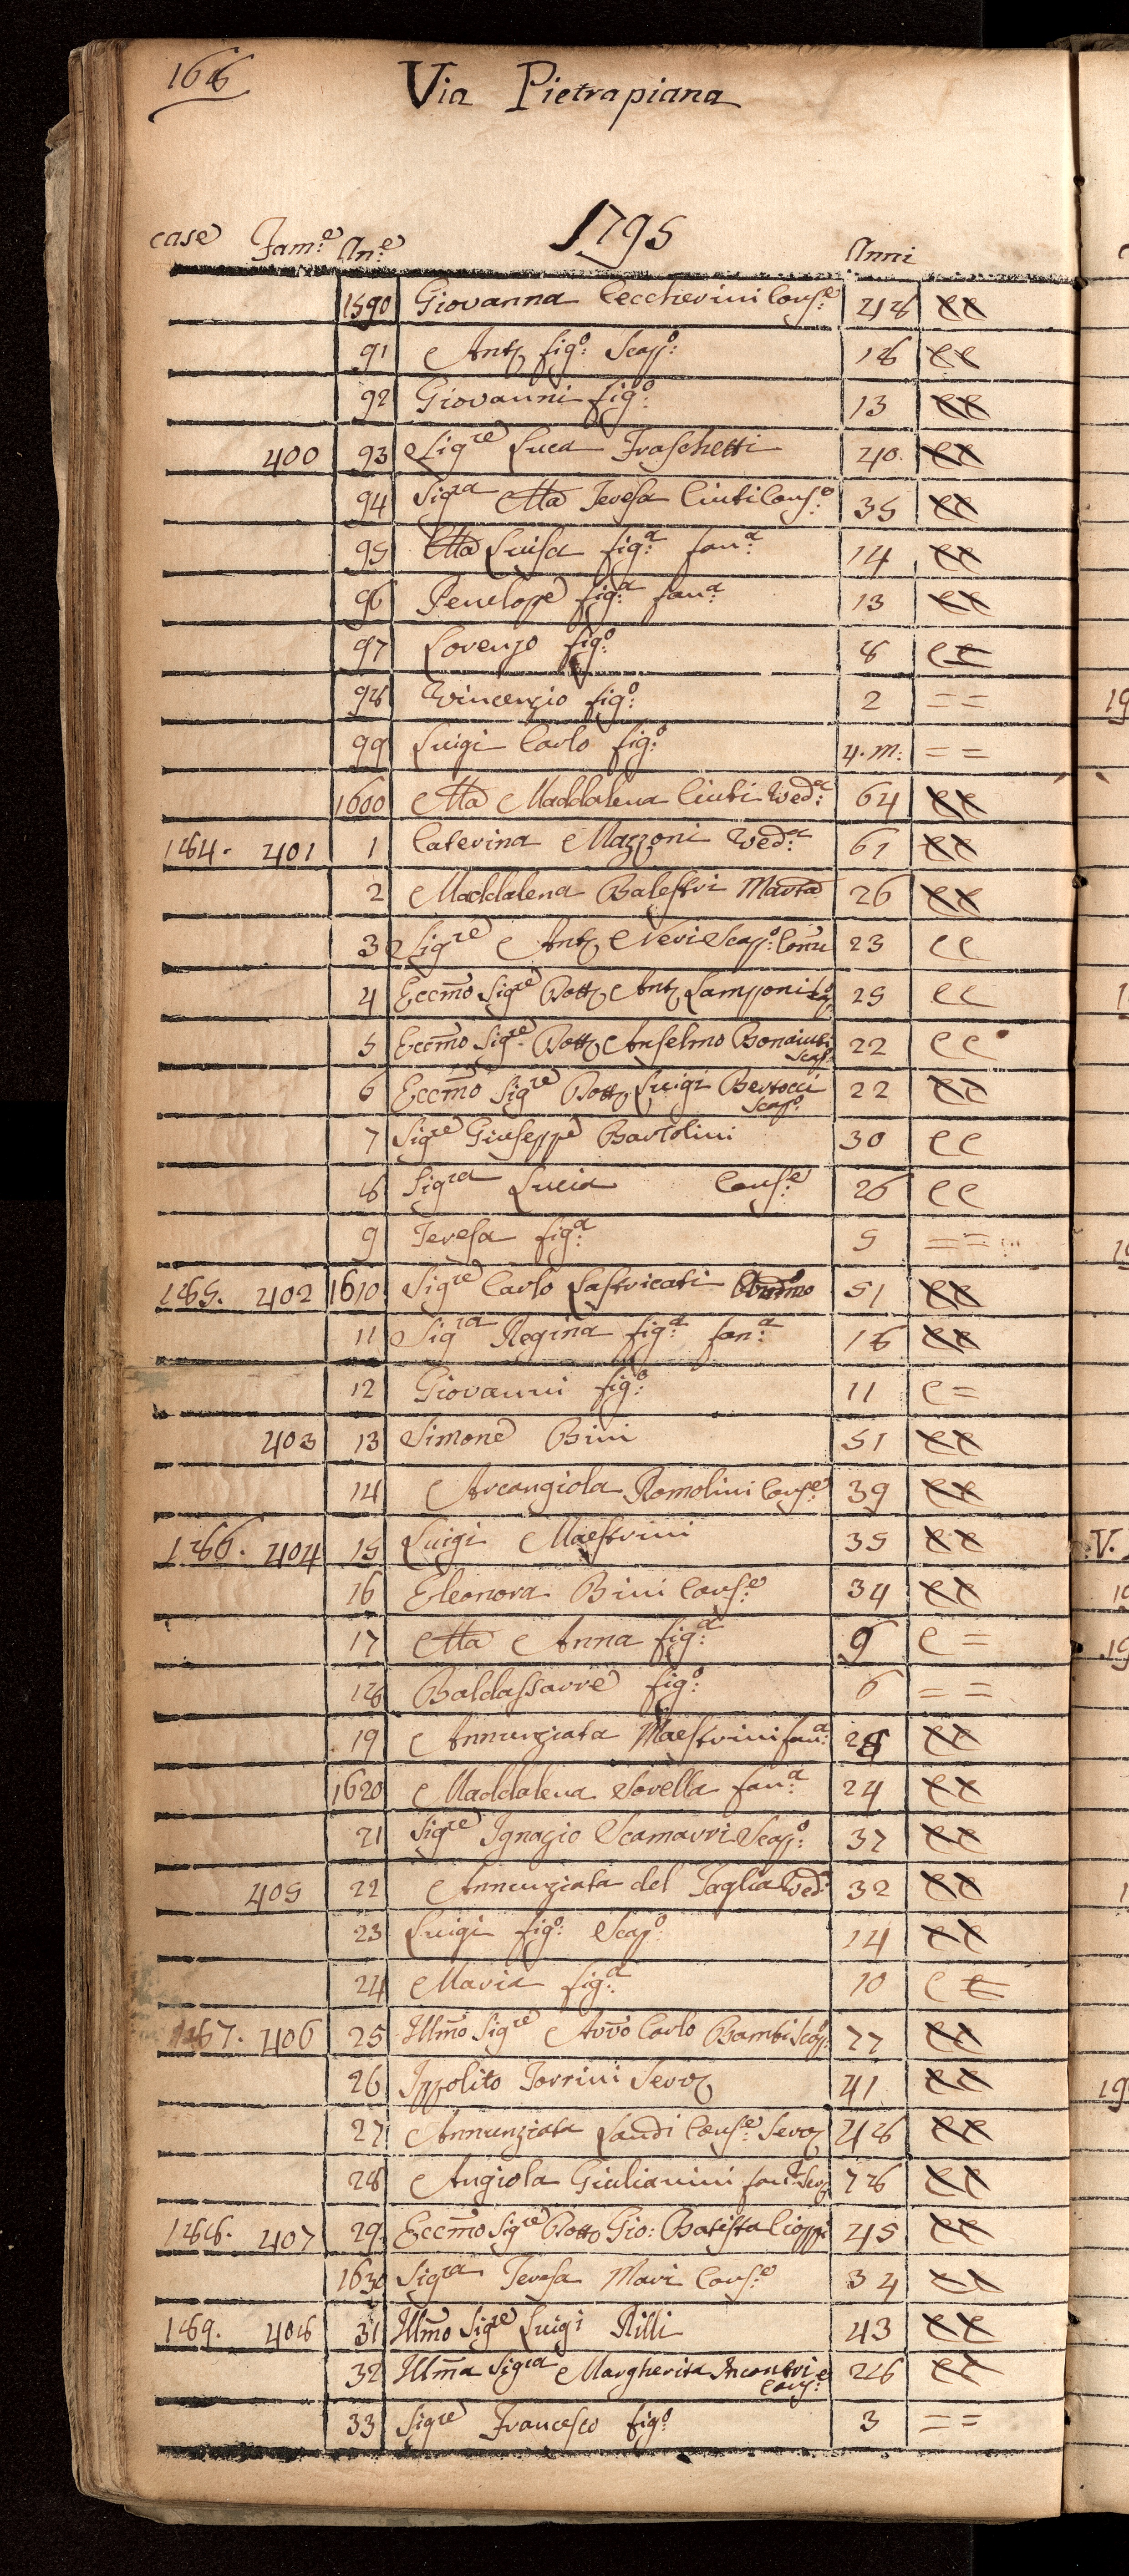 168
Via Pietrapiana
1795
case Fam:e An:e Anni
1590 Giovanna Ceccherini Cons:e 48
91 Ant:o fig:o Scap:o 18
92 Giovanni fig:o 13
400 93 Sig:re Luca Fraschetti 40
94 Sig:ra Ma Teresa Ciuti Cons:e 35
95 Ma Luisa fig:a fan:a 14
96 Penelope fig:a fan:a 13
97 Lorenzo fig:o 8
98 Vincenzio fig:o 2 = =
99 Luigi Carlo fig:o 4. m: = =
1600 Ma Maddalena Ciuti Ved:a 64
184. 401 1 Caterina Mazzoni Ved:a 61
2 Maddalena Balestri Marta 26
3 Sig:re Ant:o Neri Scap:o 23 CC
4 Eccmo Sig:re Dott:e Ant:o Lamponi 25 CC
5 Eccmo Sig:re Dott:e Anselmo Bonaiuti Scap:o 22 CC
6 Eccmo Sig:re Dott:e Luigi Bertocci Scap:o 22
7 Sig:re Giuseppe Bartolini 30 CC
8 Sig:ra Lucia Cons:e 26 CC
9 Teresa fig:a 5 = =
185. 402 1610 Sig:re Carlo Lastricati 51
11 Sig:ra Regina fig:a fan:a 18
12 Giovanni fig:o 11 C =
403 13 Simone Bini 51
14 Arcangiola Romolini Cons:e 39
186. 404 15 Luigi Maestrini 35
16 Eleonora Bini Cons:e 34
17 Ma Anna fig:a 9 C =
18 Baldassarre fig:o 6 = =
19 Annunziata Maestrini fan:a 28
1620 Maddalena Sorella fan:a 24
21 Sig:re Ignazio Scamarri Scap:o 37
405 22 Annunziata del Taglia Ved:a 32
23 Luigi fig:o Scap:o 14
24 Maria fig:a 10
187. 406 25 Illmo Sig:re Avvo Carlo Bambi Scap:o 77
26 Ippolito Torrini Serv:e 41
27 Annunziata Landi Cons:e Serv:e 48
28 Angiola Giulianini fan:a Serv:e 78
188. 407 29 Eccmo Sig:re Dott:e Gio: Batista Cioppi 45
1630 Sig:ra Teresa Mari Cons:e 34
189. 408 31 Illmo Sig:re Luigi Rilli 43
32 Illma Sig:ra Margherita Incontri Cons:e 28
33 Sig:re Francesco fig:o 3 = =